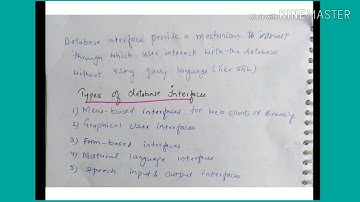 Made with KINEMASTER
Database interface provide a mechanism to interact
through which user interact with the database
without using query language (like SQL)
Types of database Interfaces
1) Menu-based interfaces for web clients or Browsing
2) Graphical User interfaces
3) Form-based interfaces
4) Natural language interfaces
5) Speech input & output interfaces